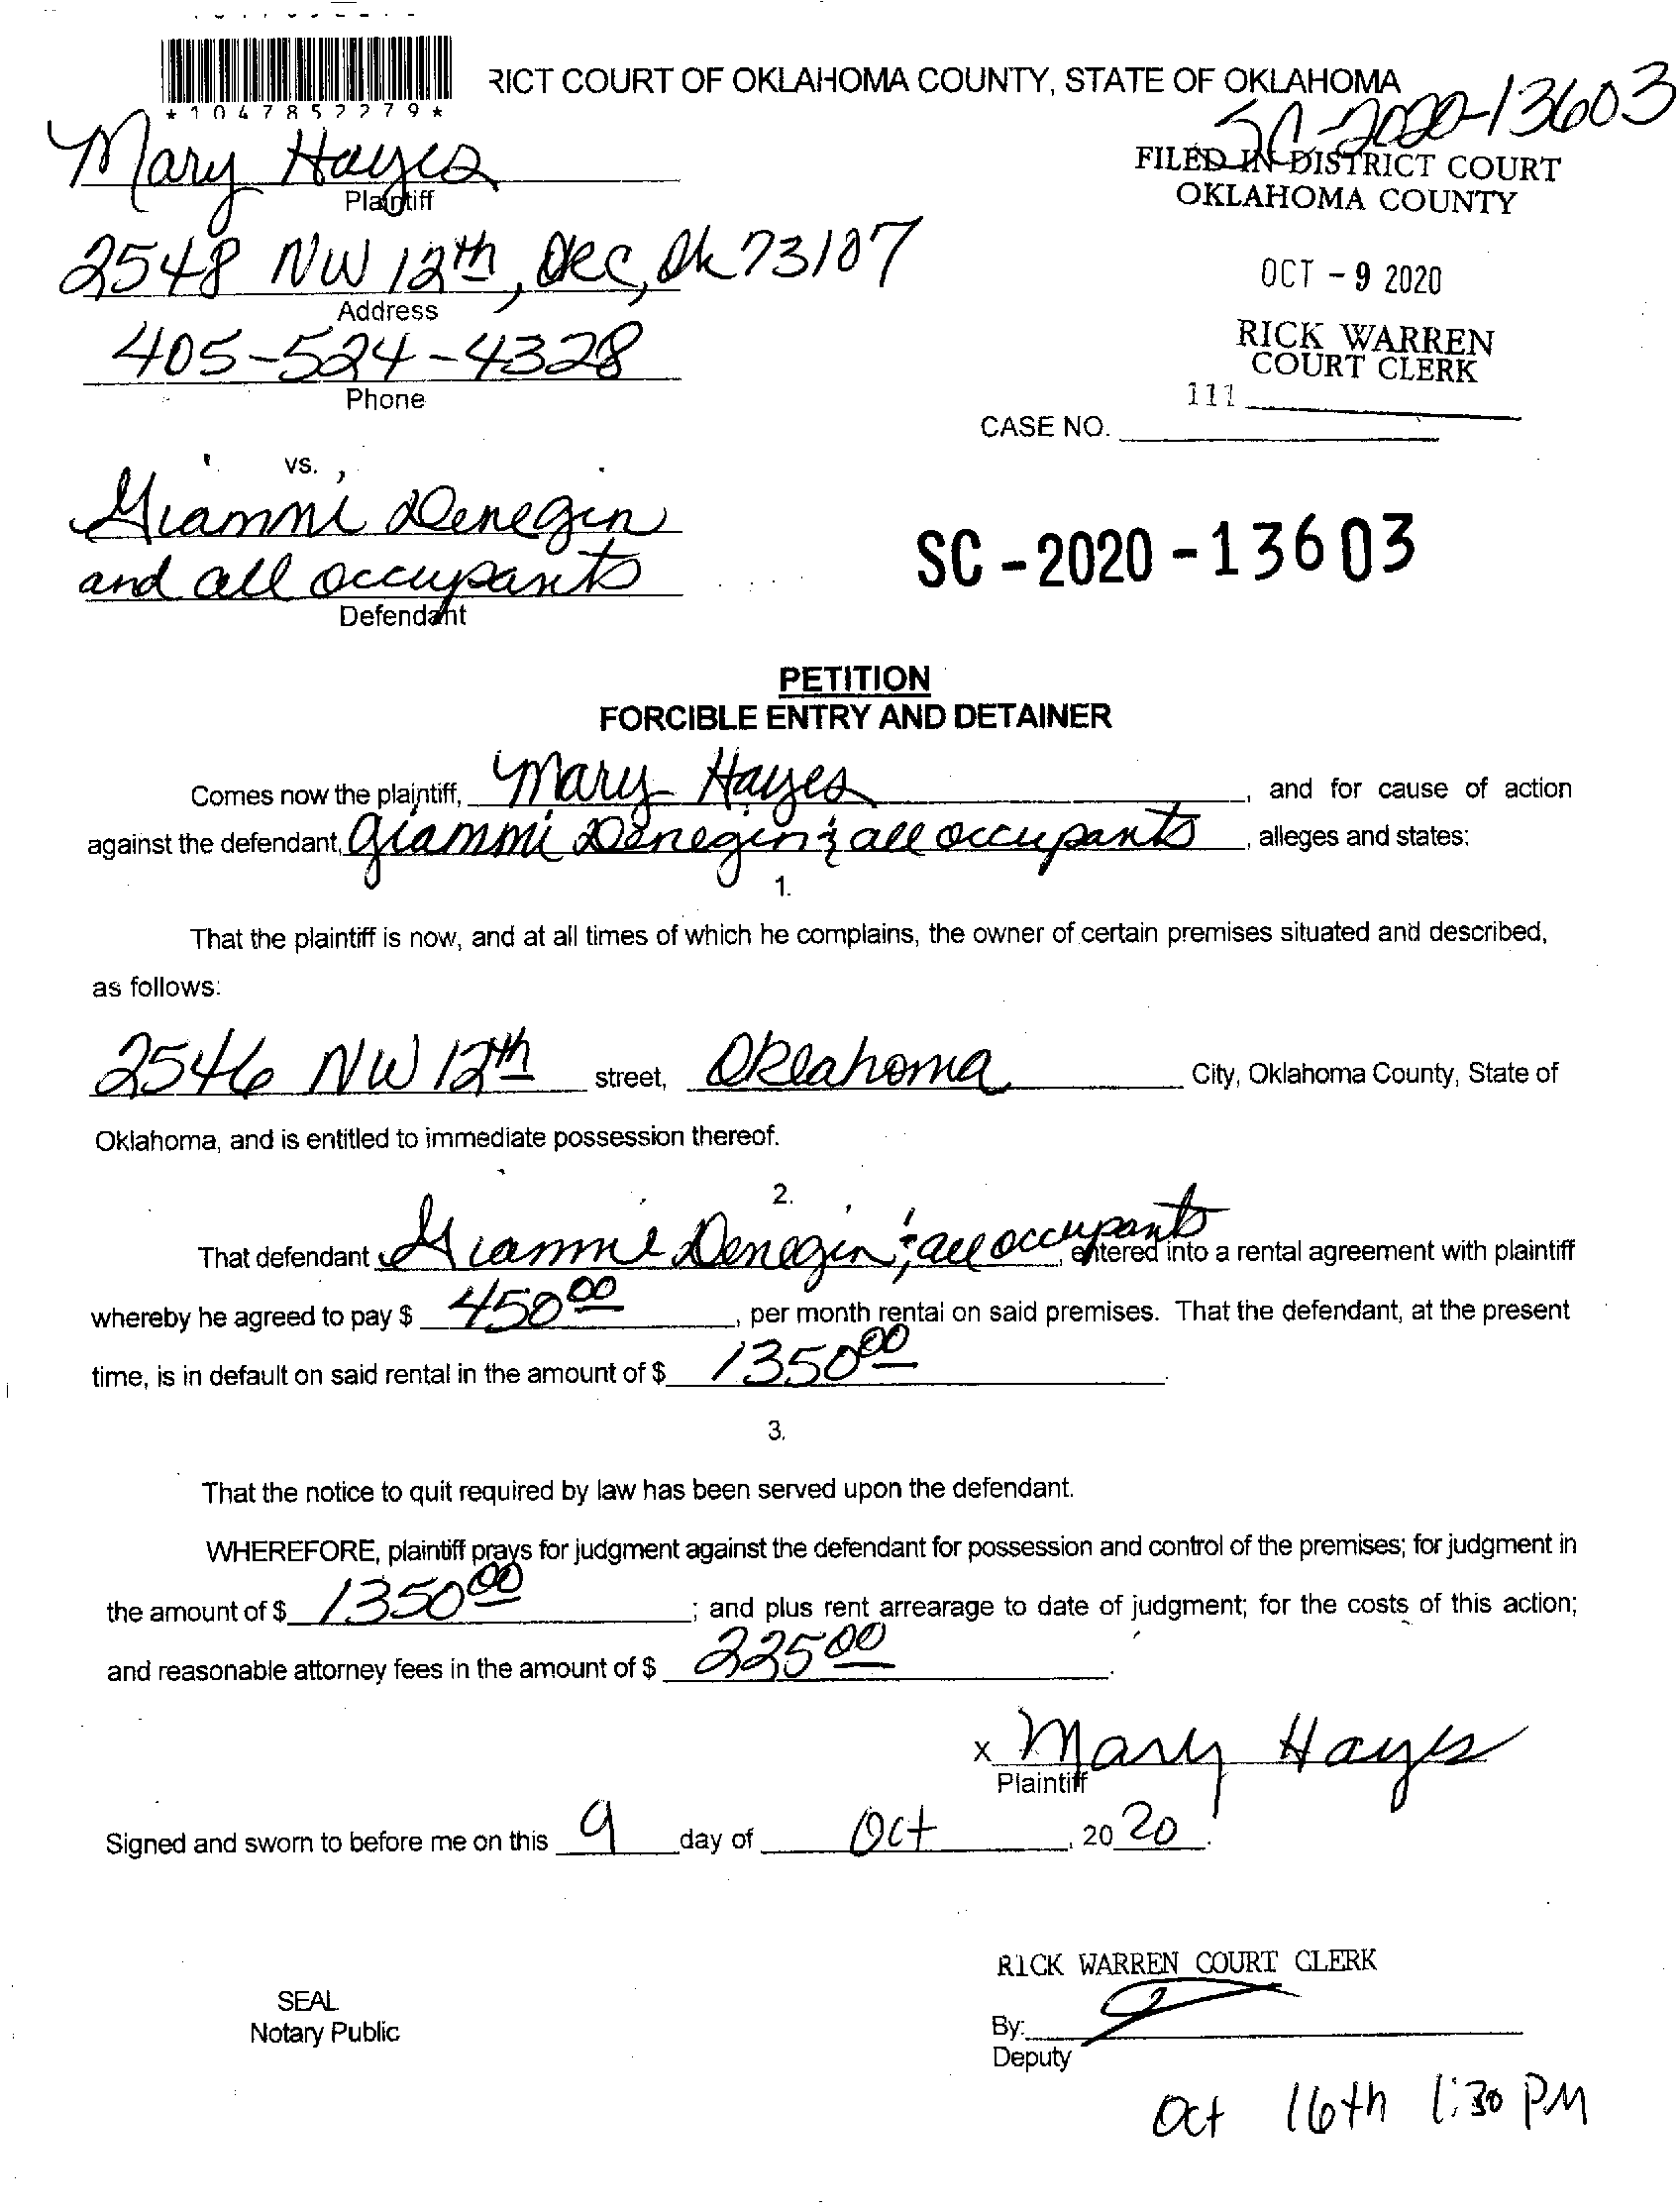 RICT COURT OF OKLAHOMA COUNTY, STATE OF OKLAHOMA
*1047852279*
SC-2020-13603
Mary Hayes
Plaintiff
FILED IN DISTRICT COURT
OKLAHOMA COUNTY
2548 NW 12th, OKC, Ok 73107
Address
OCT - 9 2020
405-524-4328
Phone
RICK WARREN
COURT CLERK
111
CASE NO.
vs.
Giammi Denegin
and all occupants
Defendant
SC-2020-13603
PETITION
FORCIBLE ENTRY AND DETAINER
Comes now the plaintiff, Mary Hayes, and for cause of action
against the defendant, Giammi Denegin & all occupants, alleges and states:
1.
That the plaintiff is now, and at all times of which he complains, the owner of certain premises situated and described,
as follows:
2546 NW 12th street, Oklahoma City, Oklahoma County, State of
Oklahoma, and is entitled to immediate possession thereof.
2.
That defendant Giammi Denegin & all occupants, entered into a rental agreement with plaintiff
whereby he agreed to pay $ 450 00, per month rental on said premises. That the defendant, at the present
time, is in default on said rental in the amount of $ 1350 00.
3.
That the notice to quit required by law has been served upon the defendant.
WHEREFORE, plaintiff prays for judgment against the defendant for possession and control of the premises; for judgment in
the amount of $ 1350 00; and plus rent arrearage to date of judgment; for the costs of this action;
and reasonable attorney fees in the amount of $ 225 00.
x Mary Hayes
Plaintiff
Signed and sworn to before me on this 9 day of Oct, 2020.
RICK WARREN COURT CLERK
SEAL
Notary Public
By:
Deputy
Oct 16th 1:30 PM